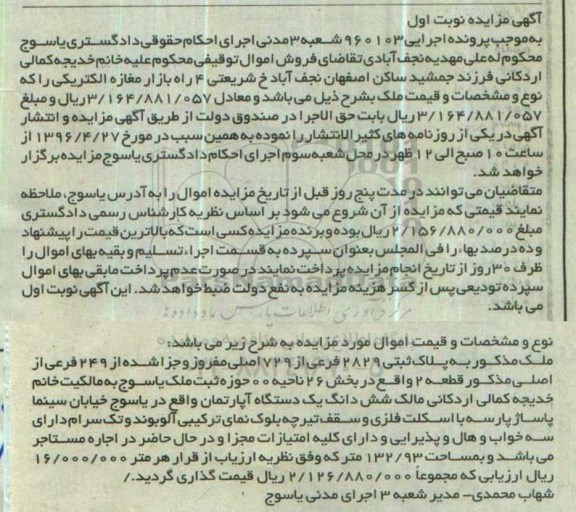 آگهی مزایده نوبت اول
به موجب پرونده اجرایی ۹۶۰۱۰۳ شعبه ۳ مدنی اجرای احکام حقوقی دادگستری یاسوج
محکوم له علی مهدیه نجف آبادی تقاضای فروش اموال توقیفی محکوم علیه خانم خدیجه کمالی
اردکانی فرزند جمشید ساکن اصفهان نجف آباد خ شریعتی ۴ راه بازار مغازه الکتریکی را که
نوع و مشخصات و قیمت ملک بشرح ذیل می باشد و معادل ۳/۱۶۴/۸۸۱/۰۵۷ ریال و مبلغ
۳/۱۶۴/۸۸۱/۰۵۷ ریال بابت حق الاجرا در صندوق دولت از طریق آگهی مزایده و انتشار
آگهی در یکی از روزنامه های کثیر الانتشار را نموده به همین سبب در مورخ ۱۳۹۶/۴/۲۷ از
ساعت ۱۰ صبح الی ۱۲ ظهر در محل شعبه سوم اجرای احکام دادگستری یاسوج مزایده برگزار
خواهد شد.
متقاضیان می توانند در مدت پنج روز قبل از تاریخ مزایده اموال را به آدرس یاسوج، ملاحظه
نمایند قیمتی که مزایده از آن شروع می شود بر اساس نظریه کارشناس رسمی دادگستری
مبلغ ۲/۱۵۶/۸۸۰/۰۰۰ ریال بوده و برنده مزایده کسی است که بالاترین قیمت را پیشنهاد
و ده درصد بها، را فی المجلس بعنوان سپرده به قسمت اجراء تسلیم و بقیه بهای اموال را
ظرف ۳۰ روز از تاریخ انجام مزایده پرداخت نمایند در صورت عدم پرداخت مابقی بهای اموال
سپرده تودیعی پس از کسر هزینه مزایده به نفع دولت ضبط خواهد شد. این آگهی نوبت اول
می باشد.
نوع و مشخصات و قیمت اموال مورد مزایده به شرح زیر می باشد:
ملک مذکور به پلاک ثبتی ۲۸۲۹ فرعی از ۷۲۹ اصلی مفروز و جزا شده از ۲۴۹ فرعی از
اصلی مذکور قطعه ۲ واقع در بخش ۲۶ ناحیه ۰۰ حوزه ثبت ملک یاسوج به مالکیت خانم
خدیجه کمالی اردکانی مالک شش دانگ یک دستگاه آپارتمان واقع در یاسوج خیابان سینما
پاساژ پارسه با اسکلت فلزی و سقف تیرچه بلوک نمای ترکیبی آلوبوند و تک سرام دارای
سه خواب و هال و پذیرایی و دارای کلیه امتیازات مجزا و در حال حاضر در اجاره مستاجر
می باشد و بمساحت ۱۳۲/۹۳ متر که وفق نظریه ارزیاب از قرار هر متر ۱۶/۰۰۰/۰۰۰
ریال ارزیابی که مجموعاً ۲/۱۲۶/۸۸۰/۰۰۰ ریال قیمت گذاری گردید./
شهاب محمدی- مدیر شعبه ۳ اجرای مدنی یاسوج